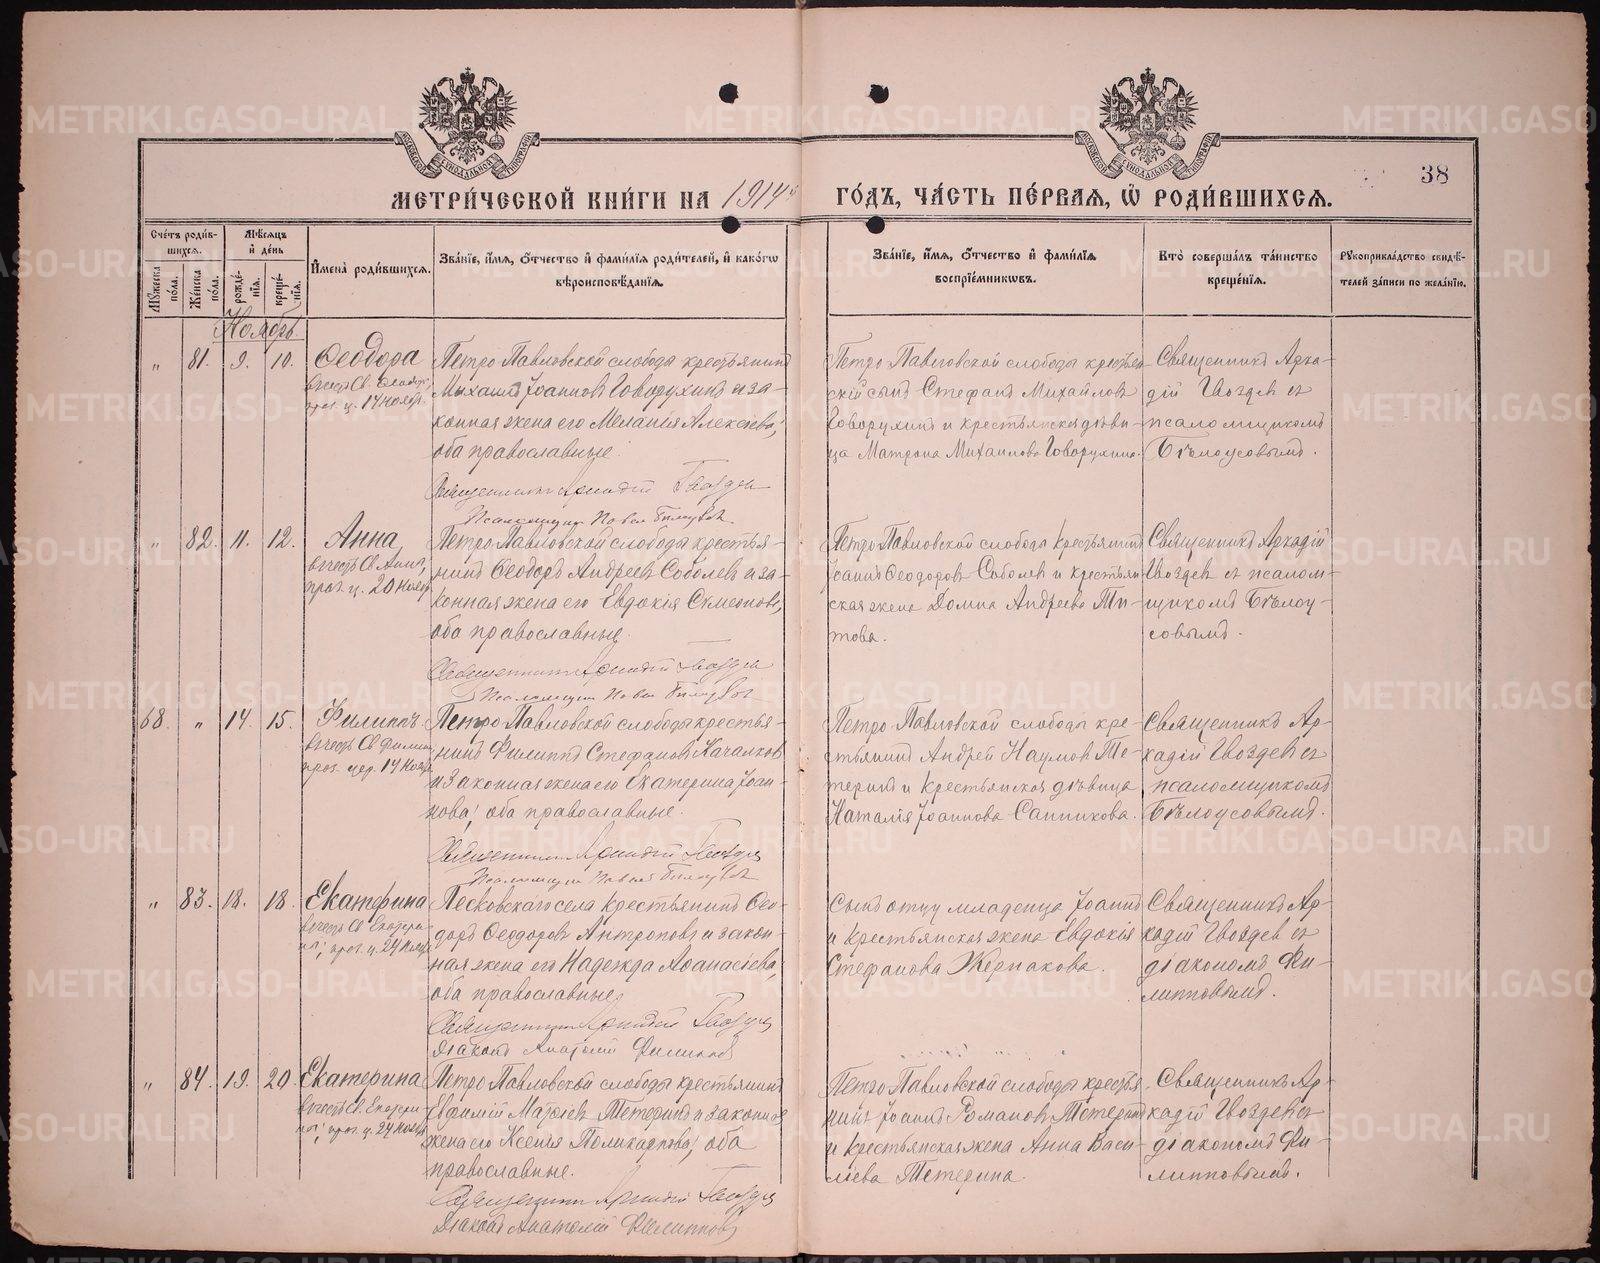 38
МЕТРИ́ЧЕСКОЙ КНИ́ГИ НА 1914й ГО́ДЪ, ЧА́СТЬ ПЕ́РВАЯ, Ѡ РОДИ́ВШИХСѦ.
Сче́тъ роди́в-
шихсѧ.
Мꙋжеска по́ла.
Же́нска по́ла.
Мѣ́сяцъ
и҆ де́нь
рожде́-
нїѧ.
креще́-
нїѧ.
И҆мена̀ роди́вшихсѧ.
Зва́нїе, и҆́мѧ, ѻ҆́тчество и҆ фами́лїѧ роди́телей, и҆ како́гѡ
вѣроисповѣ́данїѧ.
Зва́нїе, и҆́мѧ, ѻ҆́тчество и҆ фами́лїѧ
воспрїе́мникѡвъ.
Кто̀ соверша́лъ та́инство
креще́нїѧ.
Рꙋкоприкла́дство свидѣ́-
телей за́писи по жела́нїю.
Ноябрь
" 81. 9. 10. Ѳеодора
въ честь Св. Ѳеодоры
праз. ц. 14 ноябр.
Петро Павловской слободы крестьянинъ
Михаилъ Іоанновъ Говорухинъ и за-
конная жена его Меланія Алексіева,
оба православные.
Священникъ Аркадій Гвоздевъ
Псаломщикъ Павелъ Бѣлоусовъ
Петро Павловской слободы крестьян-
скій сынъ Стефанъ Михайловъ
Говорухинъ и крестьянская дѣви-
ца Матрона Михаилова Говорухина.
Священникъ Арка-
дій Гвоздевъ съ
псаломщикомъ
Бѣлоусовымъ.
" 82. 11. 12. Анна
въ честь Св. Анны,
праз. ц. 20 ноябр.
Петро Павловской слободы крестья-
нинъ Ѳеодоръ Андреевъ Соболевъ и за-
конная жена его Евдокія Симеонова,
оба православные.
Священникъ Аркадій Гвоздевъ
Псаломщикъ Павелъ Бѣлоусовъ
Петро Павловской слободы крестьянинъ
Іоаннъ Ѳеодоровъ Соболевъ и крестьян-
ская жена Домна Андреева Ти-
това.
Священникъ Аркадій
Гвоздевъ съ псалом-
щикомъ Бѣлоу-
совымъ.
68. " 14. 15. Филиппъ
въ честь Св. Филип.
праз. цер. 14 ноябр.
Петро Павловской слободы крестья-
нинъ Филиппъ Стефановъ Качалковъ
и законная жена его Екатерина Іоан-
нова, оба православные.
Священникъ Аркадій Гвоздевъ
Псаломщикъ Павелъ Бѣлоусовъ
Петро-Павловской слободы кре-
стьянинъ Андрей Наумовъ Те-
теринъ и крестьянская дѣвица
Наталія Іоаннова Санникова.
Священникъ Ар-
кадій Гвоздевъ съ
псаломщикомъ
Бѣлоусовымъ.
" 83. 18. 18. Екатерина
въ честь Св. Екатери-
ны, праз. ц. 24 ноябр.
Песковскаго села крестьянинъ Ѳео-
доръ Ѳеодоровъ Антроповъ и закон-
ная жена его Надежда Аѳанасіева,
оба православные.
Священникъ Аркадій Гвоздевъ
Діаконъ Анатолій Филипповъ
Сынъ отцу младенца Іоаннъ
и крестьянская жена Евдокія
Стефанова Жернакова.
Священникъ Ар-
кадій Гвоздевъ съ
діакономъ Фи-
липповымъ.
" 84. 19. 20. Екатерина
въ честь Св. Екатери-
ны, праз. ц. 24 ноябр.
Петро Павловской слободы крестьянинъ
Евфимій Матѳіевъ Тетеринъ и законная
жена его Ксенія Поликарпова, оба
православные.
Священникъ Аркадій Гвоздевъ
Діаконъ Анатолій Филипповъ
Петро Павловской слободы крестья-
нинъ Іоаннъ Романовъ Тетеринъ
и крестьянская жена Анна Васи-
льева Тетерина.
Священникъ Ар-
кадій Гвоздевъ съ
діакономъ Фи-
липповымъ.
METRIKI.GASO-URAL.RU